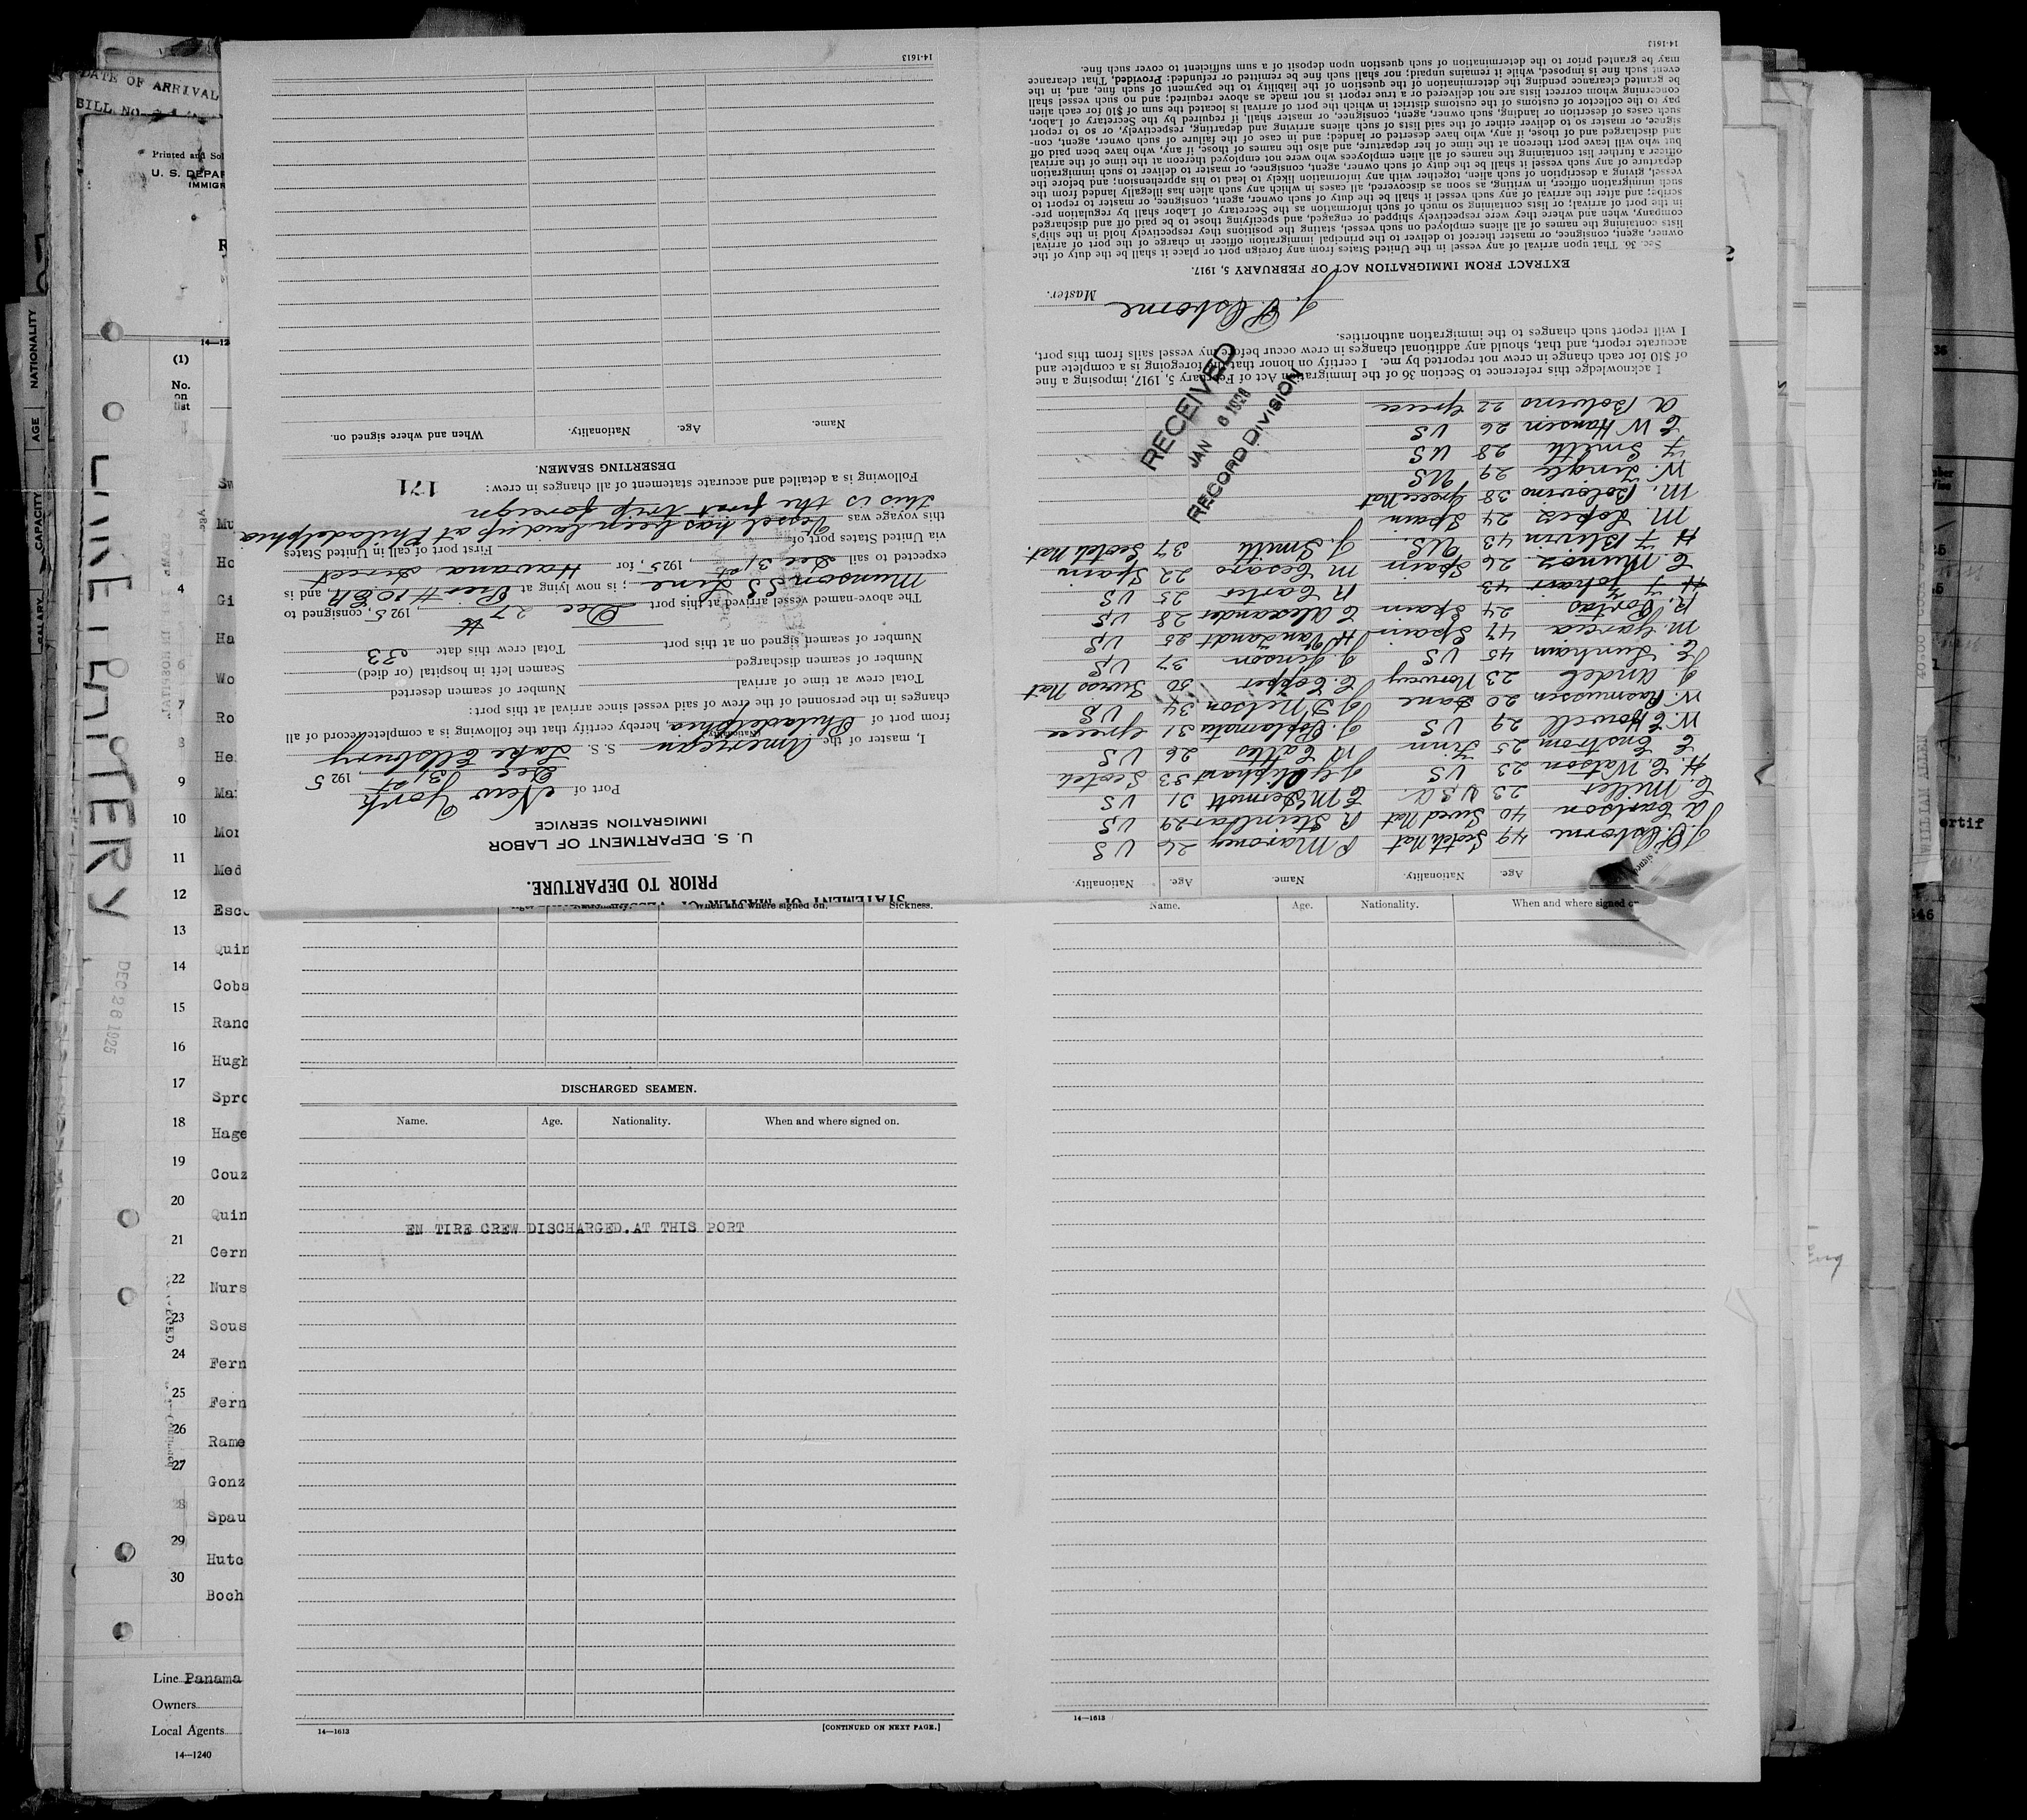 STATEMENT OF MASTER OF VESSEL
PRIOR TO DEPARTURE.
U. S. DEPARTMENT OF LABOR
IMMIGRATION SERVICE
Port of New York
Dec 31st, 1925
I, master of the American S. S. Lake Ellsbury
(Nationality)
from port of Philadelphia, hereby certify that the following is a complete record of all
changes in the personnel of the crew of said vessel since arrival at this port:
Total crew at time of arrival Number of seamen deserted
Number of seamen discharged Seamen left in hospital (or died)
Number of seamen signed on at this port Total crew this date 33
The above-named vessel arrived at this port Dec 27th, 1925, consigned to
Munson SS Line; is now lying at Pier #10 ER and is
expected to sail Dec 31st, 1925, for Havana direct
via United States port of First port of call in United States
this voyage was Vessel has been laid up at Philadelphia
this is the first trip foreign
Following is a detailed and accurate statement of all changes in crew: 171
DESERTING SEAMEN.
Name. Age. Nationality. When and where signed on.
14-1613
Age. Nationality. Name. Age. Nationality.
Osborne 49 Scotch Nat P Maroney 26 US
A Carlson 40 Swed Nat R 29 US
C Miller 23 USA E McDermott 31 US
H. C. Watson 23 US J G Oliphant 33 Scotch
E Enstrom 25 Finn 26 US
W. E Howell 29 US 31 Greece
W. Rasmussen 20 Dane J D Nelson 34 US
J Andel 23 Norway C. Copper 50 Nat
C. Lunham 45 US J. Jenson 37 US
M. Garcia 47 Spain H Van Zandt 25 US
R. Portas 24 Spain C Alexander 28 US
H 43 R Carter 25 US
C. Munoz 26 Spain M Cesaro 22 Spain
H F Blivin 43 US. J. Smith 34 Scotch Nat.
M. Lopez 24 Spain
M. Bolovino 38 Greece Nat
W. 29 US
F Smith 28 US
C W Hansen 26 US
A Bolovino 22 Greece
I acknowledge this reference to Section 36 of the Immigration Act of February 5, 1917, imposing a fine
of $10 for each change in crew not reported by me. I certify on honor that the foregoing is a complete and
accurate report, and that, should any additional changes in crew occur before my vessel sails from this port,
I will report such changes to the immigration authorities.
J. Osborne Master.
RECEIVED
JAN 6 1926
RECORD DIVISION
EXTRACT FROM IMMIGRATION ACT OF FEBRUARY 5, 1917.
Sec. 36. That upon arrival of any vessel in the United States from any foreign port or place it shall be the duty of the
owner, agent, consignee, or master thereof to deliver to the principal immigration officer in charge of the port of arrival
lists containing the names of all aliens employed on such vessel, stating the positions they respectively hold in the ship's
company, when and where they were respectively shipped or engaged, and specifying those to be paid off and discharged
in the port of arrival; or lists containing so much of such information as the Secretary of Labor shall by regulation pre-
scribe; and after the arrival of any such vessel it shall be the duty of such owner, agent, consignee, or master to report to
such immigration officer, in writing, as soon as discovered, all cases in which any such alien has illegally landed from the
vessel, giving a description of such alien, together with any information likely to lead to his apprehension; and before the
departure of any such vessel it shall be the duty of such owner, agent, consignee, or master to deliver to such immigration
officer a further list containing the names of all alien employees who were not employed thereon at the time of the arrival
but who will leave port thereon at the time of her departure, and also the names of those, if any, who have been paid off
and discharged and of those, if any, who have deserted or landed; and in case of the failure of such owner, agent, con-
signee, or master so to deliver either of the said lists of such aliens arriving and departing, respectively, or so to report
such cases of desertion or landing, such owner, agent, consignee, or master shall, if required by the Secretary of Labor,
pay to the collector of customs of the customs district in which the port of arrival is located the sum of $10 for each alien
concerning whom correct lists are not delivered or a true report is not made as above required; and no such vessel shall
be granted clearance pending the determination of the question of the liability to the payment of such fine, and, in the
event such fine is imposed, while it remains unpaid; nor shall such fine be remitted or refunded: Provided, That clearance
may be granted prior to the determination of such question upon deposit of a sum sufficient to cover such fine.
14-1613
When and where signed on. Sickness.
DISCHARGED SEAMEN.
Name. Age. Nationality. When and where signed on.
EN TIRE CREW DISCHARGED.AT THIS PORT
14—1613 [CONTINUED ON NEXT PAGE.]
Name. Age. Nationality. When and where signed
14—1613
DATE OF ARRIVAL
BILL NO.
Printed and Sol
U. S. DEPAR
IMMIGR
(1)
No.
on
list
NATIONALITY
AGE
CAPACITY
SALARY
DEC 26 1925
4
6
7
9
10
11
12
13
14
15
16
17
18
19
20
21
22
23
24
25
26
27
28
29
30
Ho
Gi
Ha
Wo
Ro
He
Ma
Mor
Med
Esco
Quin
Coba
Ranc
Hugh
Spro
Hage
Couz
Quin
Cern
Nurs
Sous
Fern
Fern
Rame
Gonz
Spau
Hutc
Boch
Line Panama
Owners
Local Agents
14—1240
Eng